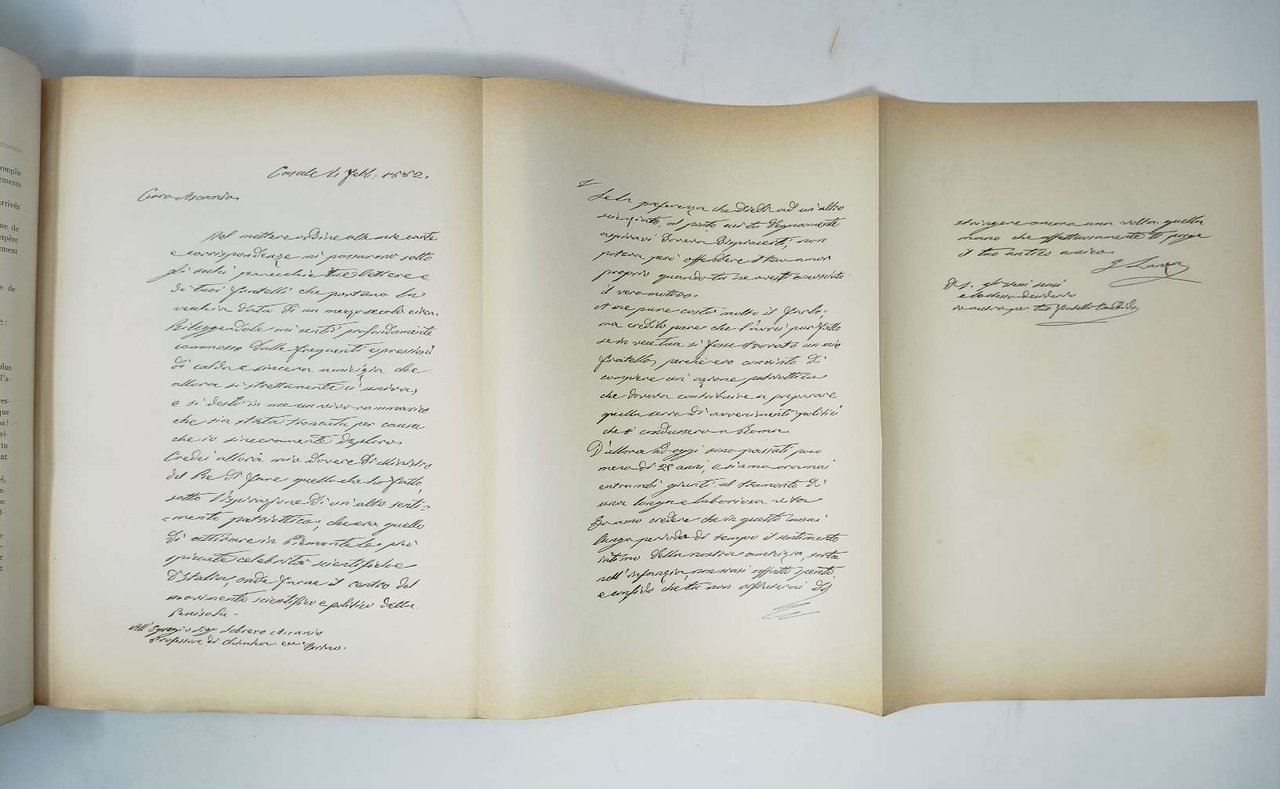 omplir
ements
arrivés
me de
espère
ement
e de
plus
l'a-
res-
que
on! -
si-
tu
nt
Casale 4 Febb. 1882.
Caro Ascanio,
Nel mettere ordine alle mie carte
e corrispondenze mi passarono sotto
gli occhi parecchie tue lettere e
de' tuoi fratelli che portano la
vecchia data di un mezzo secolo circa.
Rileggendole mi sentii profondamente
commosso dalle frequenti espressioni
di calda e sincera amicizia che
allora sì strettamente ci univa,
e si destò in me un vivo rammarico
che sia stata troncata per causa
che io sinceramente deploro.
Credei allora mio dovere di Ministro
del Re di fare quello che ho fatto,
sotto l'ispirazione di un alto senti-
-mento patriottico, che era quello
di attirare in Piemonte le più
spiccate celebrità scientifiche
d'Italia, onde farne il centro del
movimento scientifico e politico della
Penisola.
All'Egregio Sigr Sobrero Ascanio
Professore di Chimica in Torino.
Se la preferenza che diedi ad un altro
scienziato, al posto cui tu degnamente
aspiravi doveva dispiacerti, non
poteva però offendere il tuo amor
proprio quando tu ne avessi conosciuto
il vero motivo.
A me pure costò molto il farlo,
ma credilo pure che l'avrei pur fatto
se in vece tua si fosse trovato un mio
fratello, perchè ero convinto di
compiere un'azione patriottica
che doveva contribuire a preparare
quella serie di avvenimenti politici
che ci condussero a Roma.
D'allora ad oggi sono passati poco
meno di 25 anni, e siamo oramai
entrambi giunti al tramonto di
una lunga e laboriosa vita.
Io amo credere che in questo assai
lungo periodo di tempo il sentimento
intimo della nostra amicizia, sorta
nell'infanzia, non siasi affatto spento,
e confido che tu non rifiuterai di
stringere ancora una volta quella
mano che affettuosamente ti porge
il tuo antico amico
G Lanza
P.S. gli stessi sensi
e lo stesso desiderio
per tuo fratello